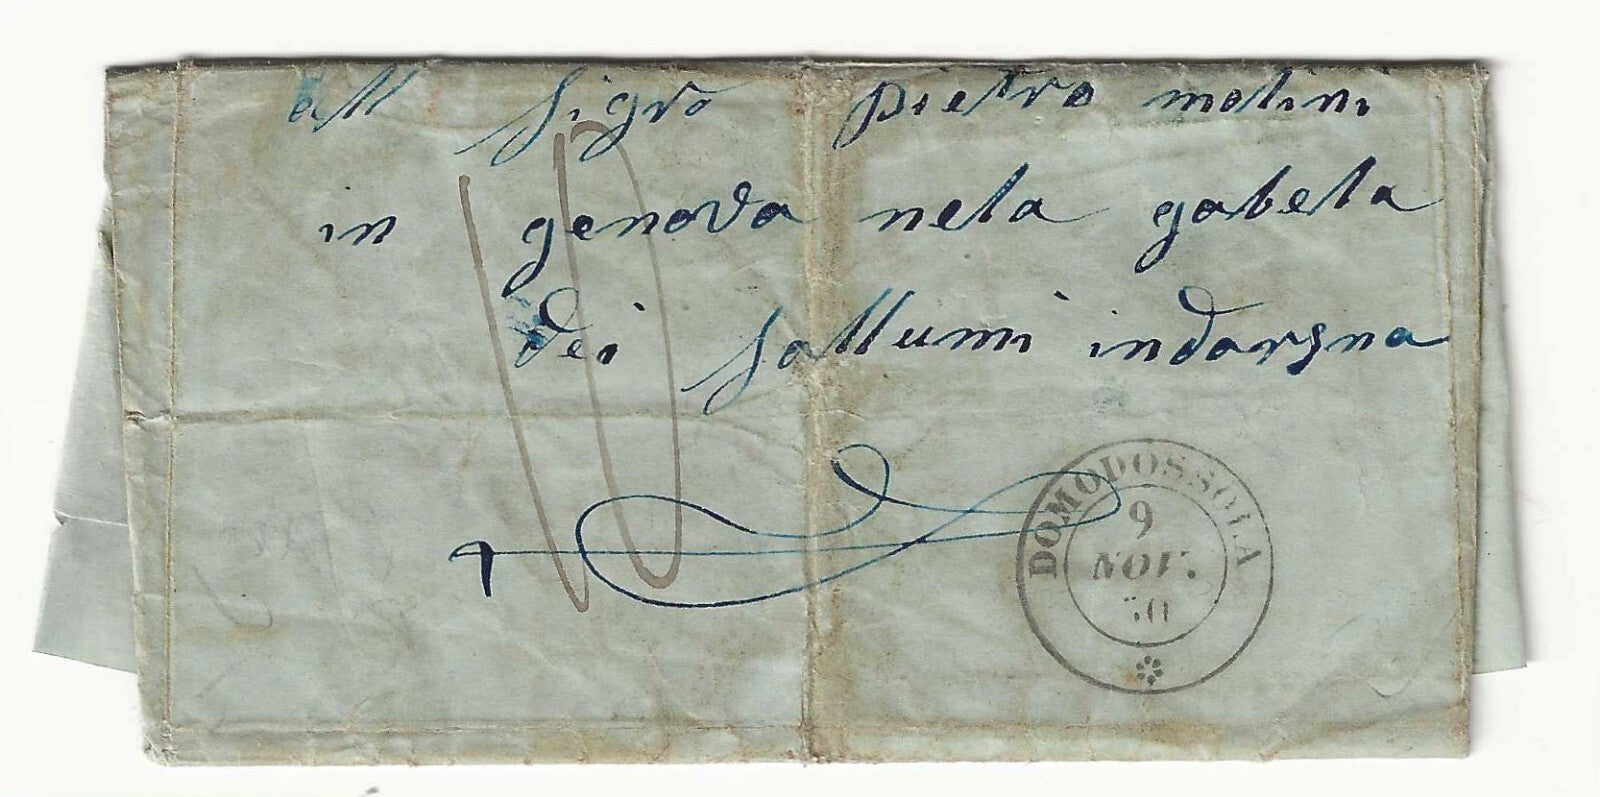 all Sigro pietro molini
in genova nela gabela
dei Sallumi indarsna
10
DOMODOSSOLA
9
NOV.
50